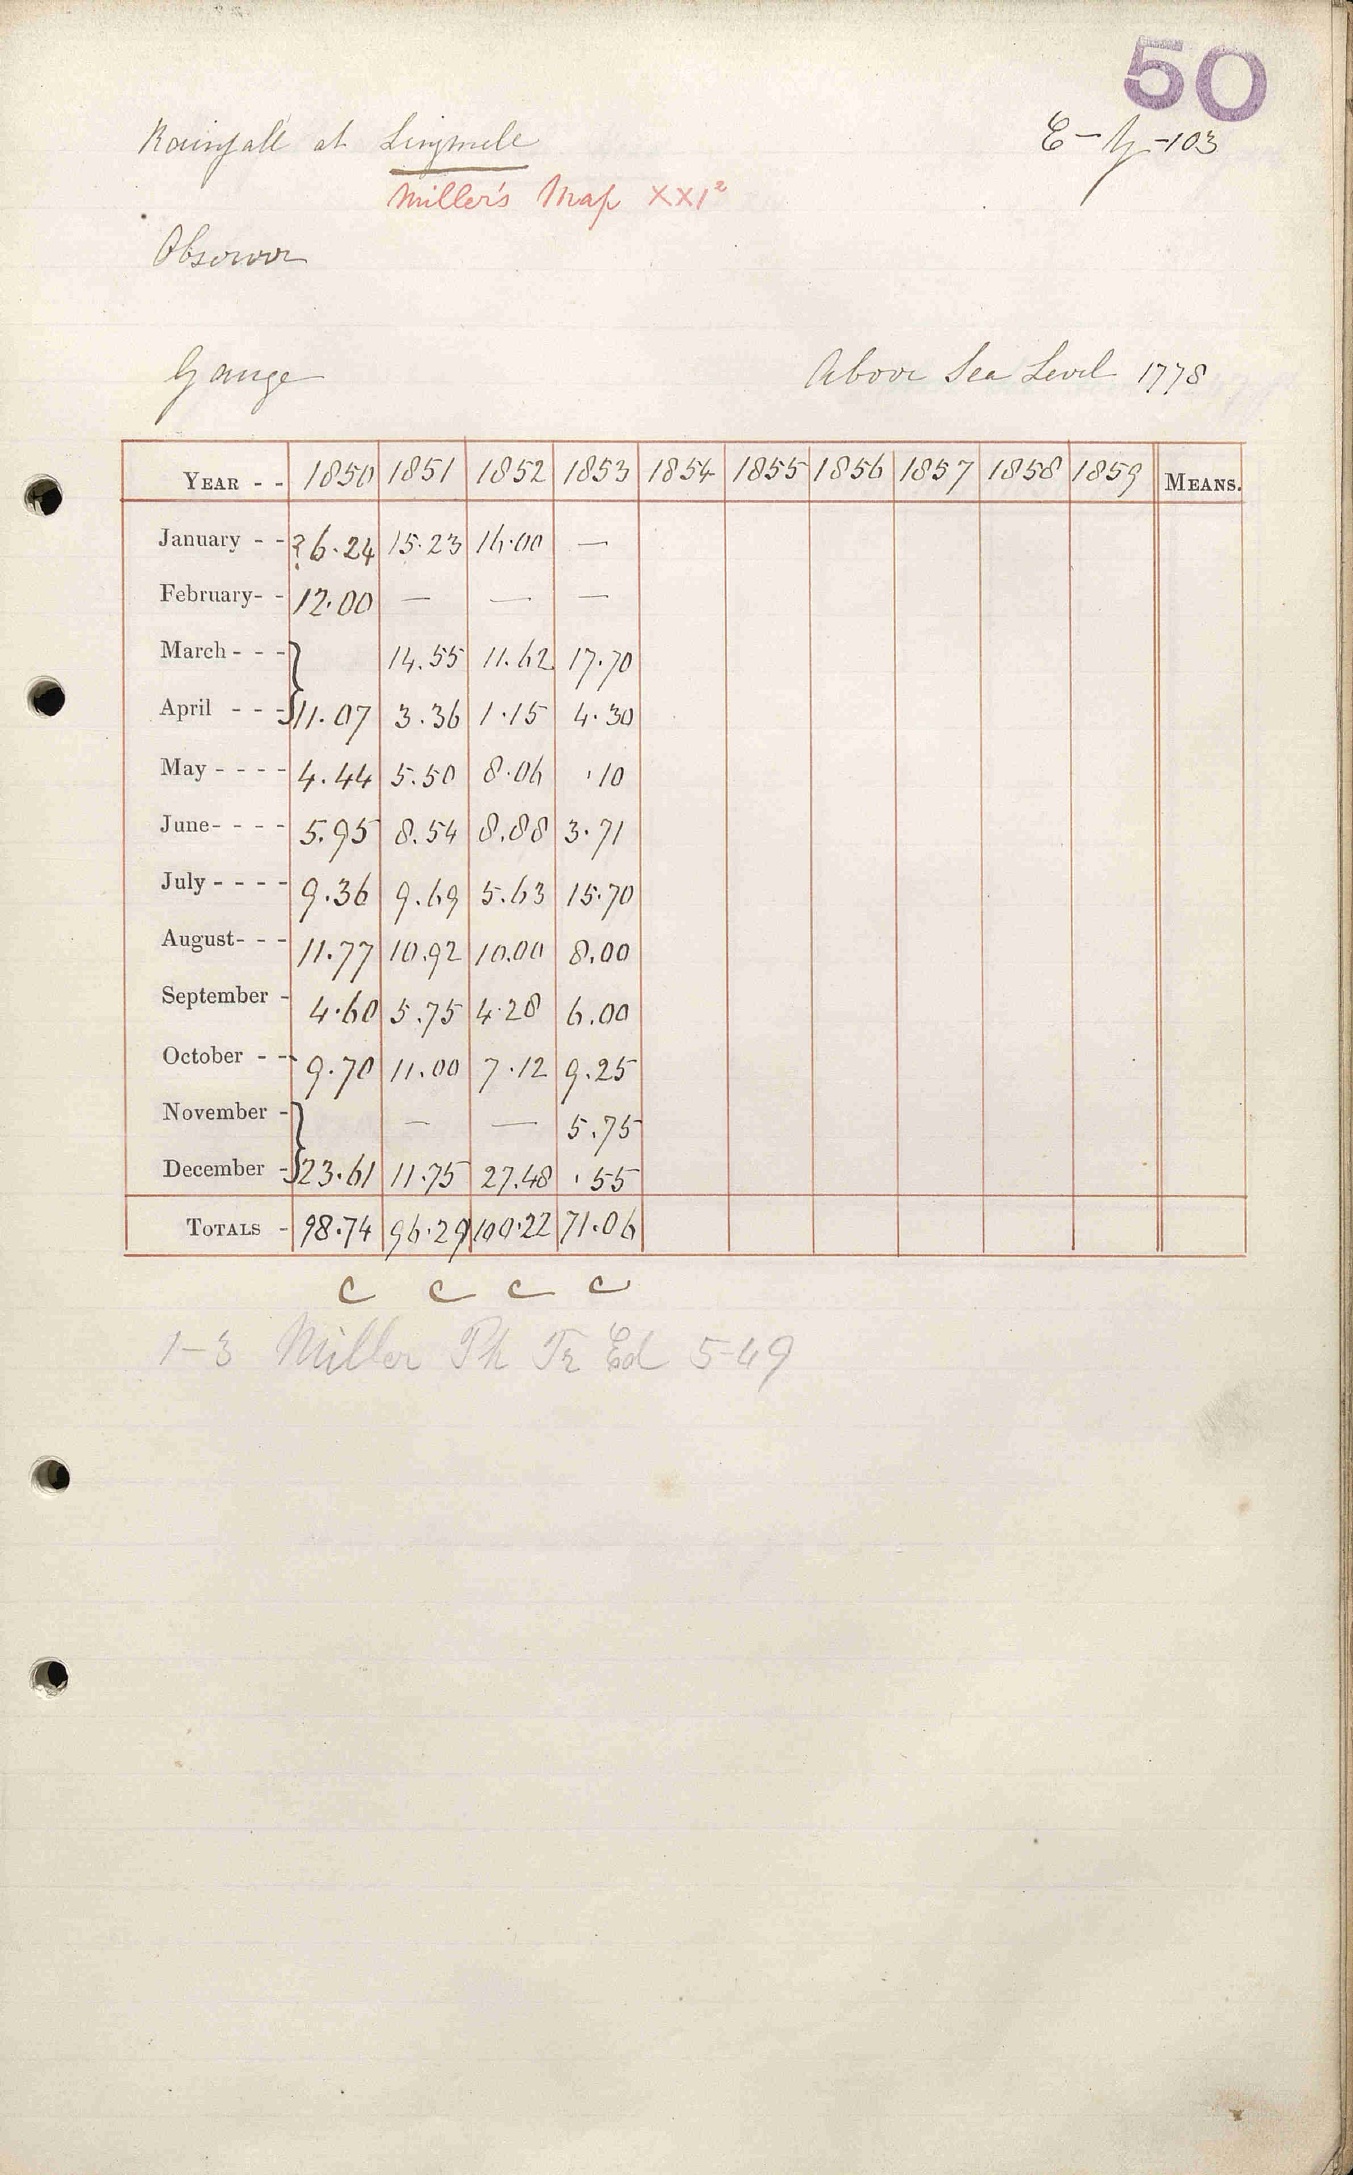 50
Rainfall at Lingmell
E - G - 103
Miller's Map XXI²
Observer
Gauge Above Sea Level 1778
YEAR - - 1850 1851 1852 1853 1854 1855 1856 1857 1858 1859 MEANS.
January - - ?6.24 15.23 16.00 —
February- - 12.00 — — —
March - - - } 14.55 11.62 17.70
April - - - } 11.07 3.36 1.15 4.30
May - - - - 4.44 5.50 8.06 .10
June- - - - 5.95 8.54 8.88 3.71
July - - - - 9.36 9.69 5.63 15.70
August- - - 11.77 10.92 10.00 8.00
September - 4.60 5.75 4.28 6.00
October - - 9.70 11.00 7.12 9.25
November - } — — 5.75
December - } 23.61 11.75 27.48 .55
TOTALS - 98.74 96.29 100.22 71.06
C C C C
1-3 Miller Ph Tr Ed 5-49